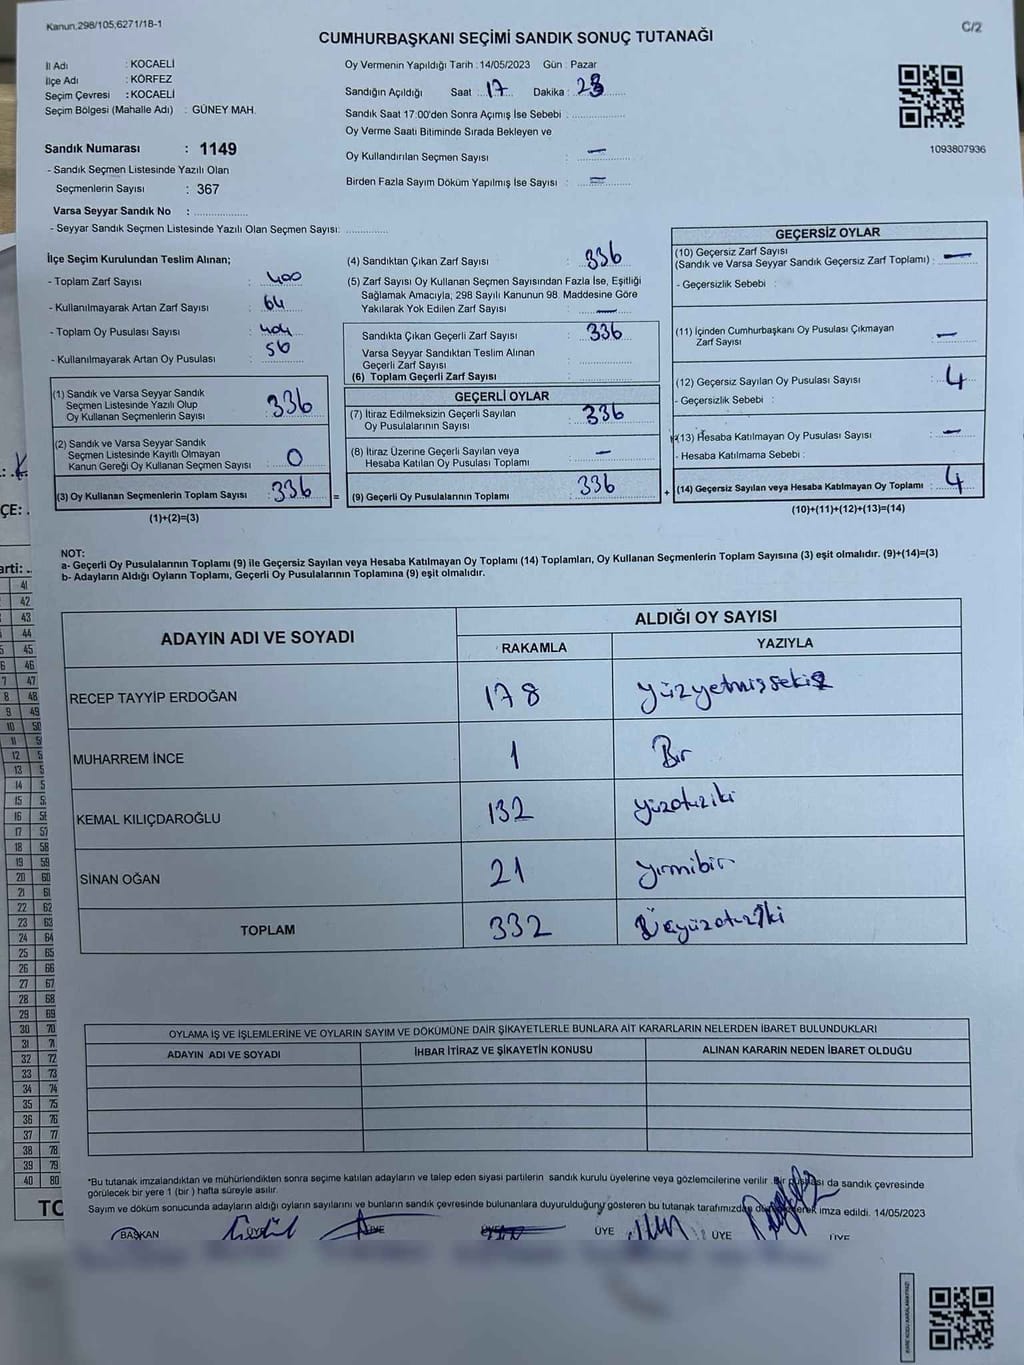 Kanun.298/105,6271/18-1
C/2
CUMHURBAŞKANI SEÇİMİ SANDIK SONUÇ TUTANAĞI
İl Adı : KOCAELİ
İlçe Adı : KÖRFEZ
Seçim Çevresi : KOCAELİ
Seçim Bölgesi (Mahalle Adı) : GÜNEY MAH.
Sandık Numarası : 1149
- Sandık Seçmen Listesinde Yazılı Olan
Seçmenlerin Sayısı : 367
Varsa Seyyar Sandık No : ..................
- Seyyar Sandık Seçmen Listesinde Yazılı Olan Seçmen Sayısı: ..............
Oy Vermenin Yapıldığı Tarih : 14/05/2023 Gün : Pazar
Sandığın Açıldığı Saat 17 Dakika :
Sandık Saat 17:00'den Sonra Açımış İse Sebebi : ..................
Oy Verme Saati Bitiminde Sırada Bekleyen ve
Oy Kullandırılan Seçmen Sayısı : —
Birden Fazla Sayım Döküm Yapılmış İse Sayısı : =
1093807936
İlçe Seçim Kurulundan Teslim Alınan;
- Toplam Zarf Sayısı : 400
- Kullanılmayarak Artan Zarf Sayısı : 64
- Toplam Oy Pusulası Sayısı : 404
- Kullanılmayarak Artan Oy Pusulası : 56
(1) Sandık ve Varsa Seyyar Sandık
Seçmen Listesinde Yazılı Olup
Oy Kullanan Seçmenlerin Sayısı : 336
(2) Sandık ve Varsa Seyyar Sandık
Seçmen Listesinde Kayıtlı Olmayan
Kanun Gereği Oy Kullanan Seçmen Sayısı : 0
(3) Oy Kullanan Seçmenlerin Toplam Sayısı : 336
(1)+(2)=(3)
(4) Sandıktan Çıkan Zarf Sayısı : 336
(5) Zarf Sayısı Oy Kullanan Seçmen Sayısından Fazla İse, Eşitliği
Sağlamak Amacıyla, 298 Sayılı Kanunun 98. Maddesine Göre
Yakılarak Yok Edilen Zarf Sayısı : —
Sandıkta Çıkan Geçerli Zarf Sayısı : 336
Varsa Seyyar Sandıktan Teslim Alınan
Geçerli Zarf Sayısı :
(6) Toplam Geçerli Zarf Sayısı :
=
GEÇERLİ OYLAR
(7) İtiraz Edilmeksizin Geçerli Sayılan
Oy Pusulalarının Sayısı : 336
(8) İtiraz Üzerine Geçerli Sayılan veya
Hesaba Katılan Oy Pusulası Toplamı : —
(9) Geçerli Oy Pusulalarının Toplamı : 336
+
GEÇERSİZ OYLAR
(10) Geçersiz Zarf Sayısı
(Sandık ve Varsa Seyyar Sandık Geçersiz Zarf Toplamı) : —
- Geçersizlik Sebebi :
(11) İçinden Cumhurbaşkanı Oy Pusulası Çıkmayan
Zarf Sayısı : —
(12) Geçersiz Sayılan Oy Pusulası Sayısı : 4
- Geçersizlik Sebebi :
(13) Hesaba Katılmayan Oy Pusulası Sayısı : —
- Hesaba Katılmama Sebebi :
(14) Geçersiz Sayılan veya Hesaba Katılmayan Oy Toplamı : 4
(10)+(11)+(12)+(13)=(14)
NOT:
a- Geçerli Oy Pusulalarının Toplamı (9) ile Geçersiz Sayılan veya Hesaba Katılmayan Oy Toplamı (14) Toplamları, Oy Kullanan Seçmenlerin Toplam Sayısına (3) eşit olmalıdır. (9)+(14)=(3)
b- Adayların Aldığı Oyların Toplamı, Geçerli Oy Pusulalarının Toplamına (9) eşit olmalıdır.
ADAYIN ADI VE SOYADI
ALDIĞI OY SAYISI
RAKAMLA YAZIYLA
RECEP TAYYİP ERDOĞAN 178 yüzyetmişsekiz
MUHARREM İNCE 1 Bir
KEMAL KILIÇDAROĞLU 132 yüzotuziki
SİNAN OĞAN 21 yirmibir
TOPLAM 332 Üçyüzotuziki
OYLAMA İŞ VE İŞLEMLERİNE VE OYLARIN SAYIM VE DÖKÜMÜNE DAİR ŞİKAYETLERLE BUNLARA AİT KARARLARIN NELERDEN İBARET BULUNDUKLARI
ADAYIN ADI VE SOYADI İHBAR İTİRAZ VE ŞİKAYETİN KONUSU ALINAN KARARIN NEDEN İBARET OLDUĞU
*Bu tutanak imzalandıktan ve mühürlendikten sonra seçime katılan adayların ve talep eden siyasi partilerin sandık kurulu üyelerine veya gözlemcilerine verilir. Bir da sandık çevresinde
görülecek bir yere 1 (bir) hafta süreyle asılır.
Sayım ve döküm sonucunda adayların aldığı oyların sayılarını ve bunların sandık çevresinde bulunanlara duyurulduğunu gösteren bu tutanak tarafımızdan imza edildi. 14/05/2023
BAŞKAN ÜYE ÜYE ÜYE ÜYE ÜYE